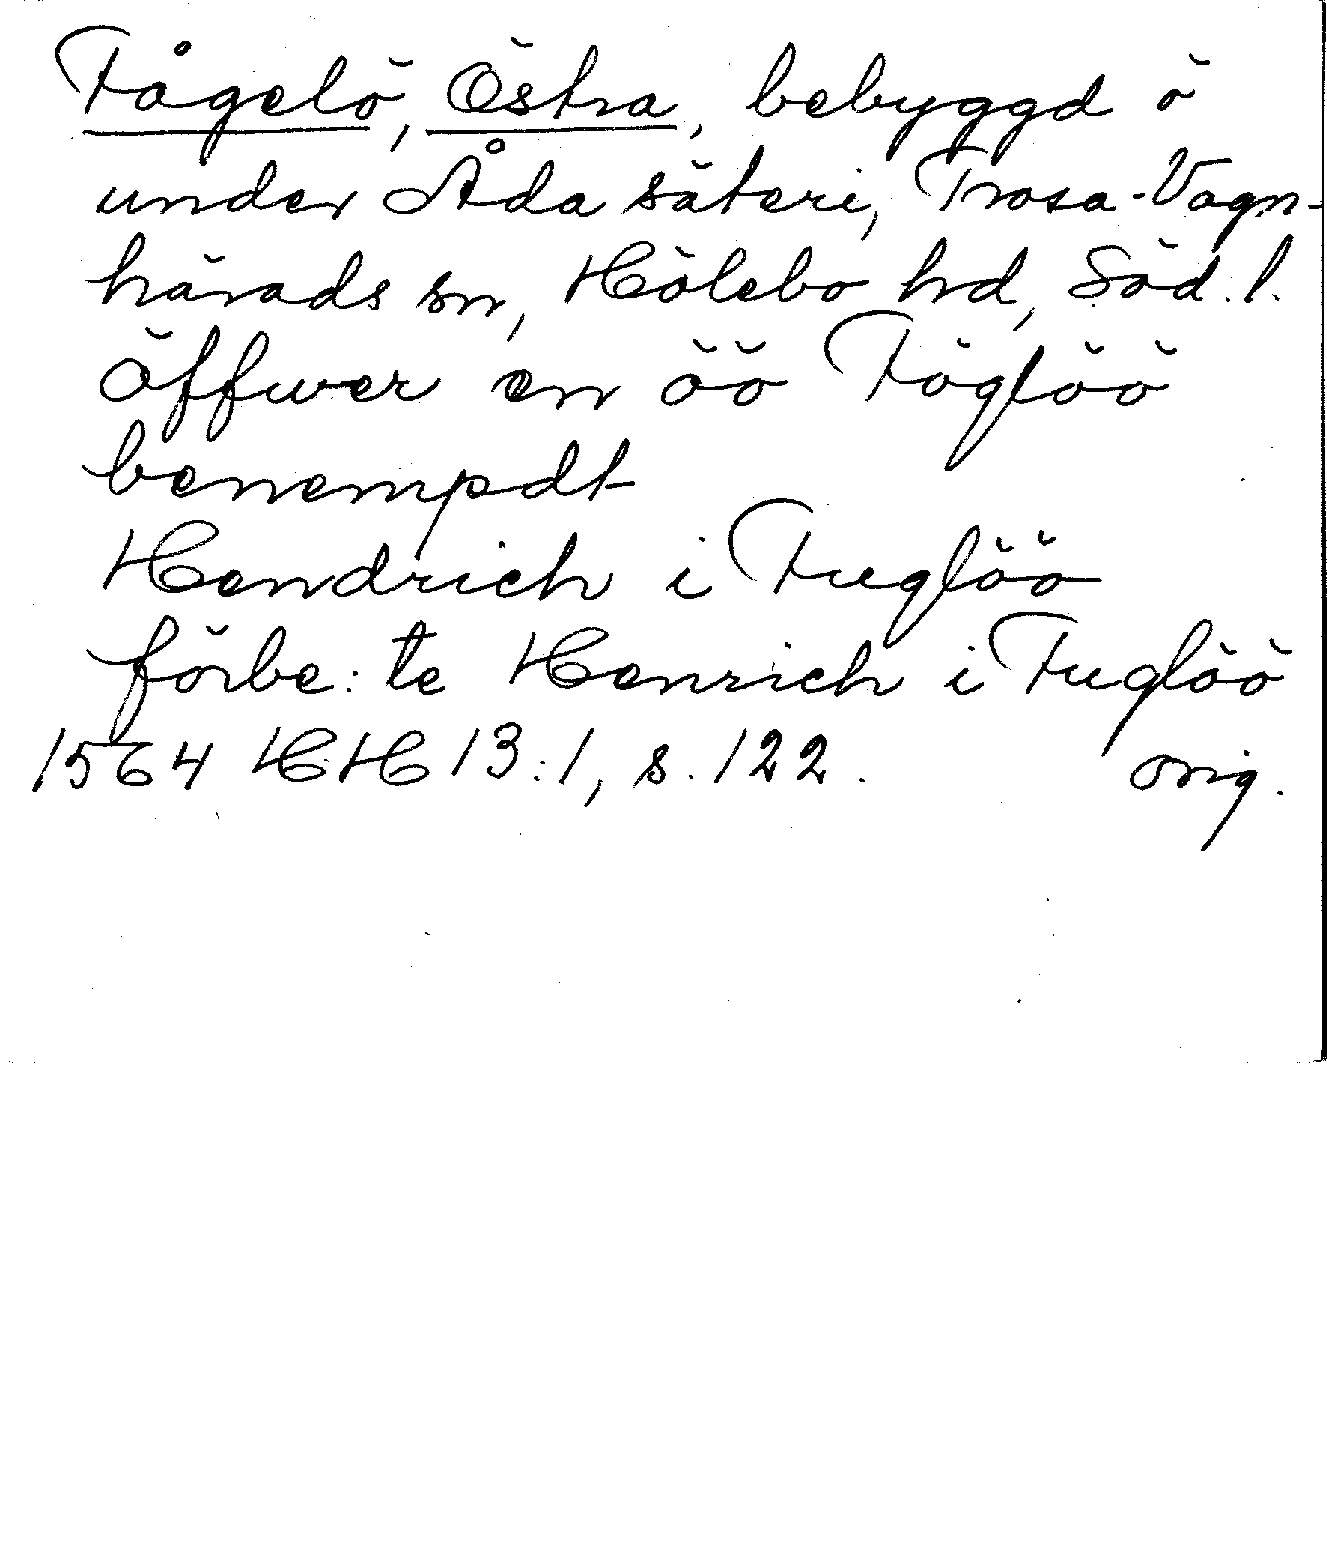 Fågelö, Östra, bebyggd ö
under Åda säteri, Trosa-Vagn-
härads sn, Hölebo hd, Söd. l.
öffwer en öö Föglöö
benempdt
Hendrich i Fuglöö
förbe:te Henrich i Fuglöö
1564 HH 13:1, s. 122. orig.